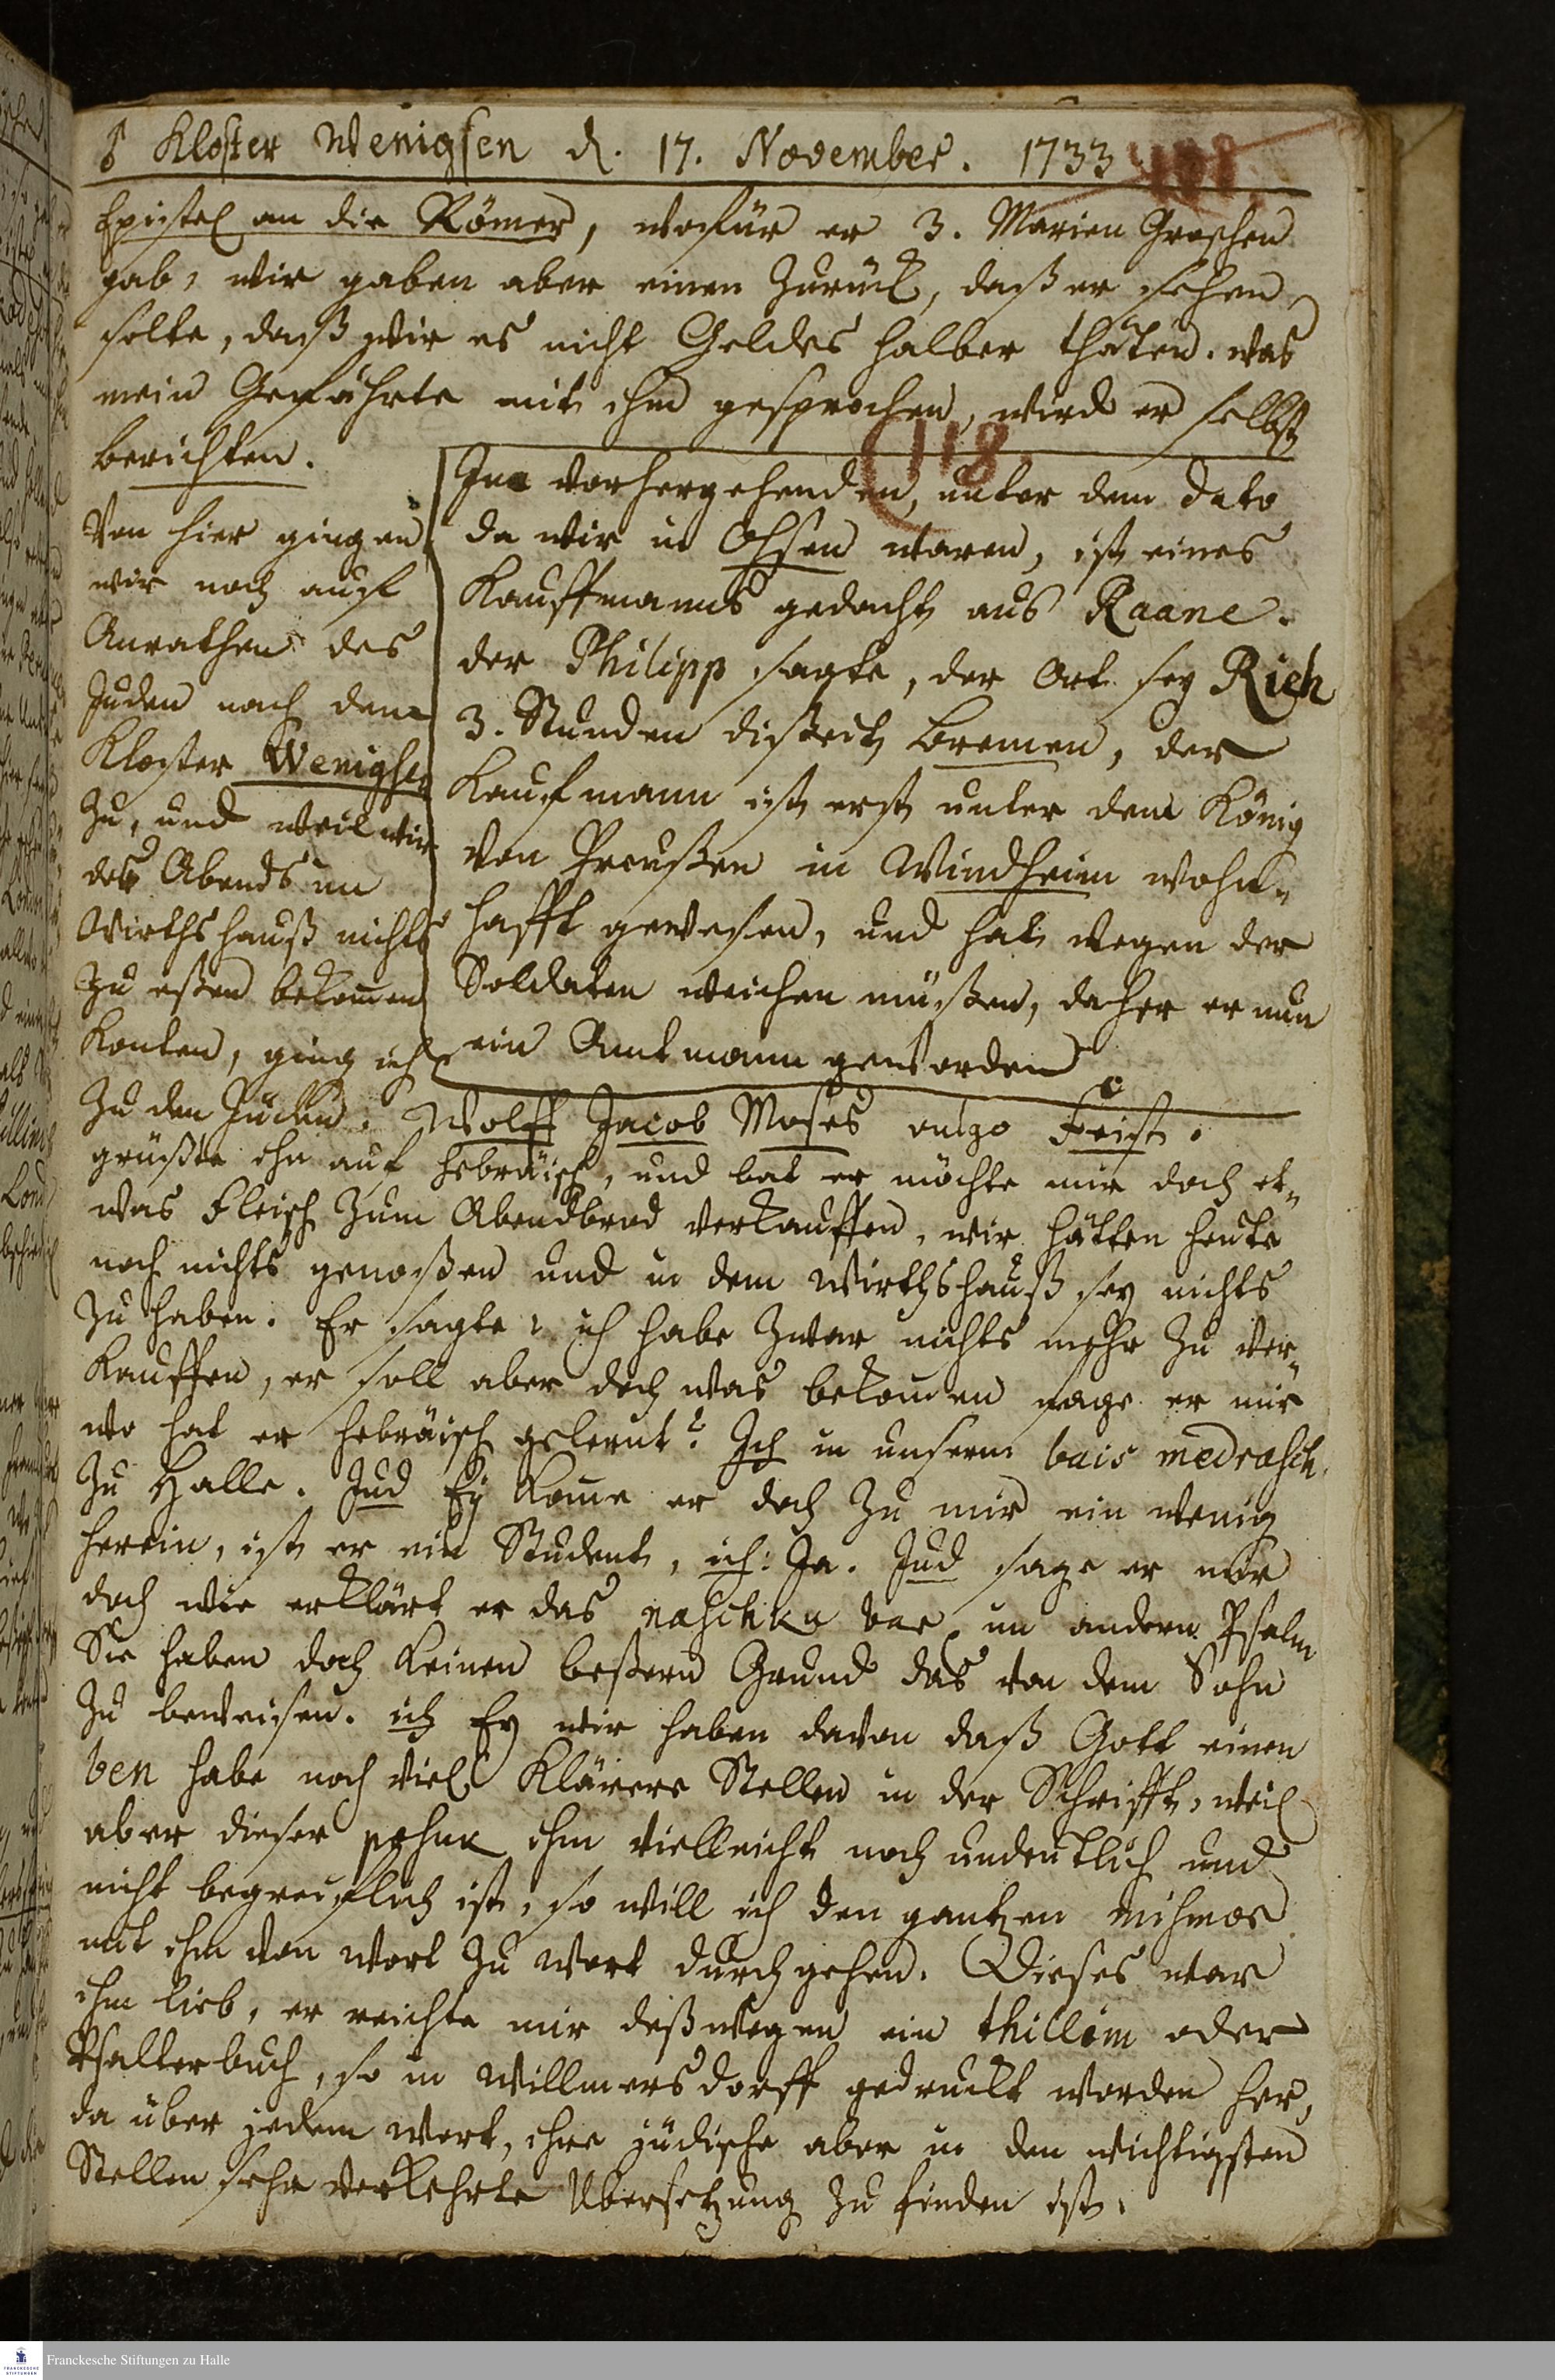 ♂ Kloster Wenigsen d. 17. November. 1733
108
Epistel an die Römer, wofür er 3. Marien Groschen
gab, wir gaben aber einen zurück, daß er sehen
solte, daß wir es nicht Geldes halber thäten. was
mein Gefährte mit ihm gesprochen, wird er selbst
berichten.
118
Von hier gingen
wir noch auf
Anrathen des
Juden nach dem
Kloster Wenigsen
zu, und weil wir
des Abends im
Wirthshauß nichts
zu eßen bekomen
konten, ging ich
Im vorhergehenden, unter dem dato
da wir in Ohsen waren, ist eines
Kauffmanns gedacht aus Raane.
der Philipp sagte, der Ort sey Rieh
3. Stunden dißeits Bremen, der
Kaufmann ist erst unter dem König
von Preußen in Windheim wohn-
hafft gewesen, und hat wegen der
Soldaten weichen müßen, daher er nun
ein Amtmann geworden
zu den Juden. Wolff Jacob Moses Feist.
grüßte ihn auf hebräisch, und bat er möchte mir doch et-
was Fleisch zum Abendbrod verkauffen, wir hätten heute
noch nichts genoßen und in dem Wirthshauß sey nichts
zu haben. Er sagte: ich habe zwar nichts mehr zu ver-
kauffen, er soll aber doch was bekomen sage er mir
wo hat er hebräisch gelernt? Ich in unserm bais medrasch
zu Halle. Jud Ey kome er doch zu mir ein wenig
herein, ist er ein Student, ich: Ja. Jud sage er mir
doch wie erklärt er das naschku bar im andern Psalm
Sie haben doch keinen beßern Grund das von dem Sohn
zu beweisen. ich Ey wir haben davon daß Gott einen
ben habe noch viel klärere Stellen in der Schrifft, weil
aber dieser ihm vielleicht noch undeutlich und
nicht begreiflich ist, so will ich den gantzen mismor
mit ihm von Wort zu Wort durchgehen. Dieses war
ihm lieb, er reichte mir deßwegen ein thillim oder
Psalterbuch, so in Willmersdorff gedruckt worden her,
da über jedem Wort, ihre jüdische aber in den wichtigsten
Stellen sehr verkehrte Übersetzung zu finden ist.
FRANCKESCHE
STIFTUNGEN
Franckesche Stiftungen zu Halle